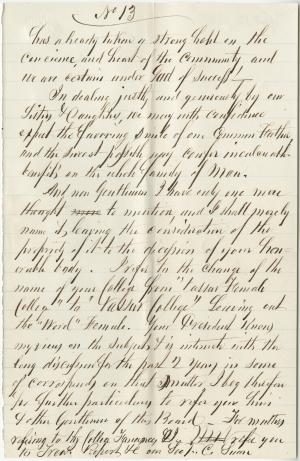 No 13
has already taken a strong hold on the
concience, and heart of the Community and
we are certain under God of success
In dealing justly and generously by our
Sisters & Daughters, we may with confidence
expect the favoring smile of one Common Father
and the Sweet possible may confer incalculable
benefits on the whole family of Man.
And now Gentlemen I have only one more
thought to mention, and I shall merely
name it, leaving the consideration of the
propriety of it to the decission of your Hon-
orable body. I refer to the change of the
name of your College from "Vassar Female
College" to "Vassar College" Leaving out
the "Word" Female. Your President Knows
my views on the subject & is intimate with the
long discussion for the past 2 Years in some
of correspondence on that matter, I beg therefore
for further particulars to refer you him
& other Gentlemen of this Board. For matters
refering to the College Finances & refer you
to Treas Report &c our Sec.